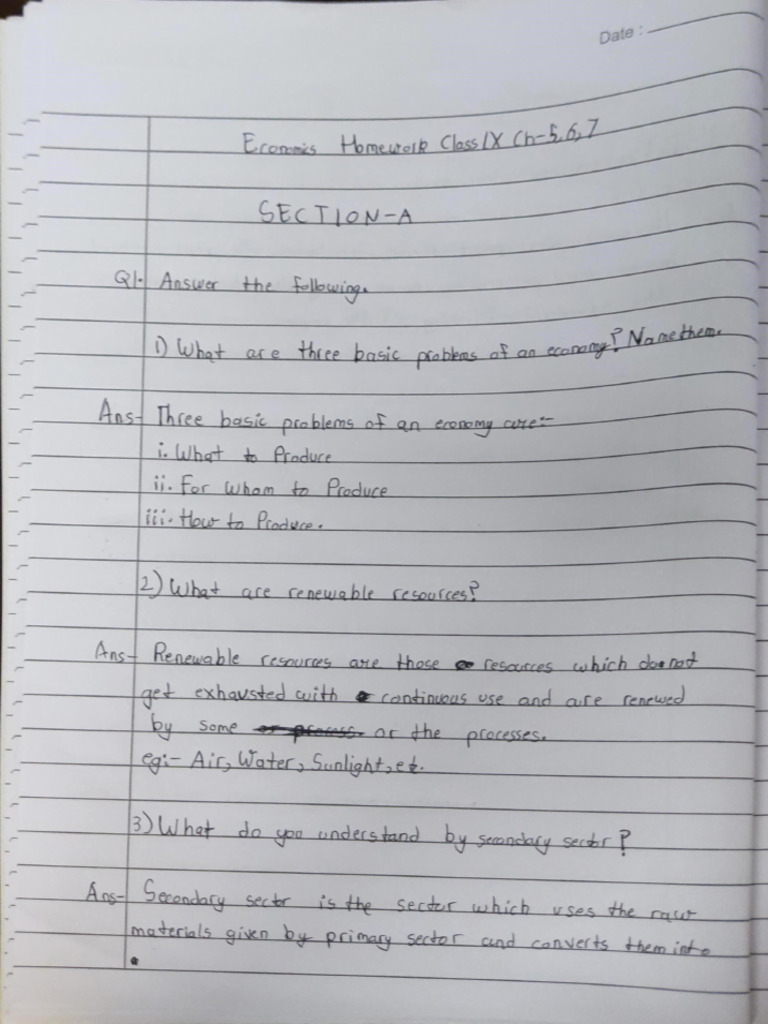 Date :
Economics Homework Class IX Ch-5,6,7
SECTION-A
Q1. Answer the following.
1) What are three basic problems of an economy? Name them.
Ans- Three basic problems of an economy are:-
i. What to Produce
ii. For Whom to Produce
iii. How to Produce.
2) What are renewable resources?
Ans- Renewable resources are those resources which do not
get exhausted with continuous use and are renewed
by some or the processes.
eg:- Air, Water, Sunlight, etc.
3) What do you understand by secondary sector?
Ans- Secondary sector is the sector which uses the raw
materials given by primary sector and converts them into